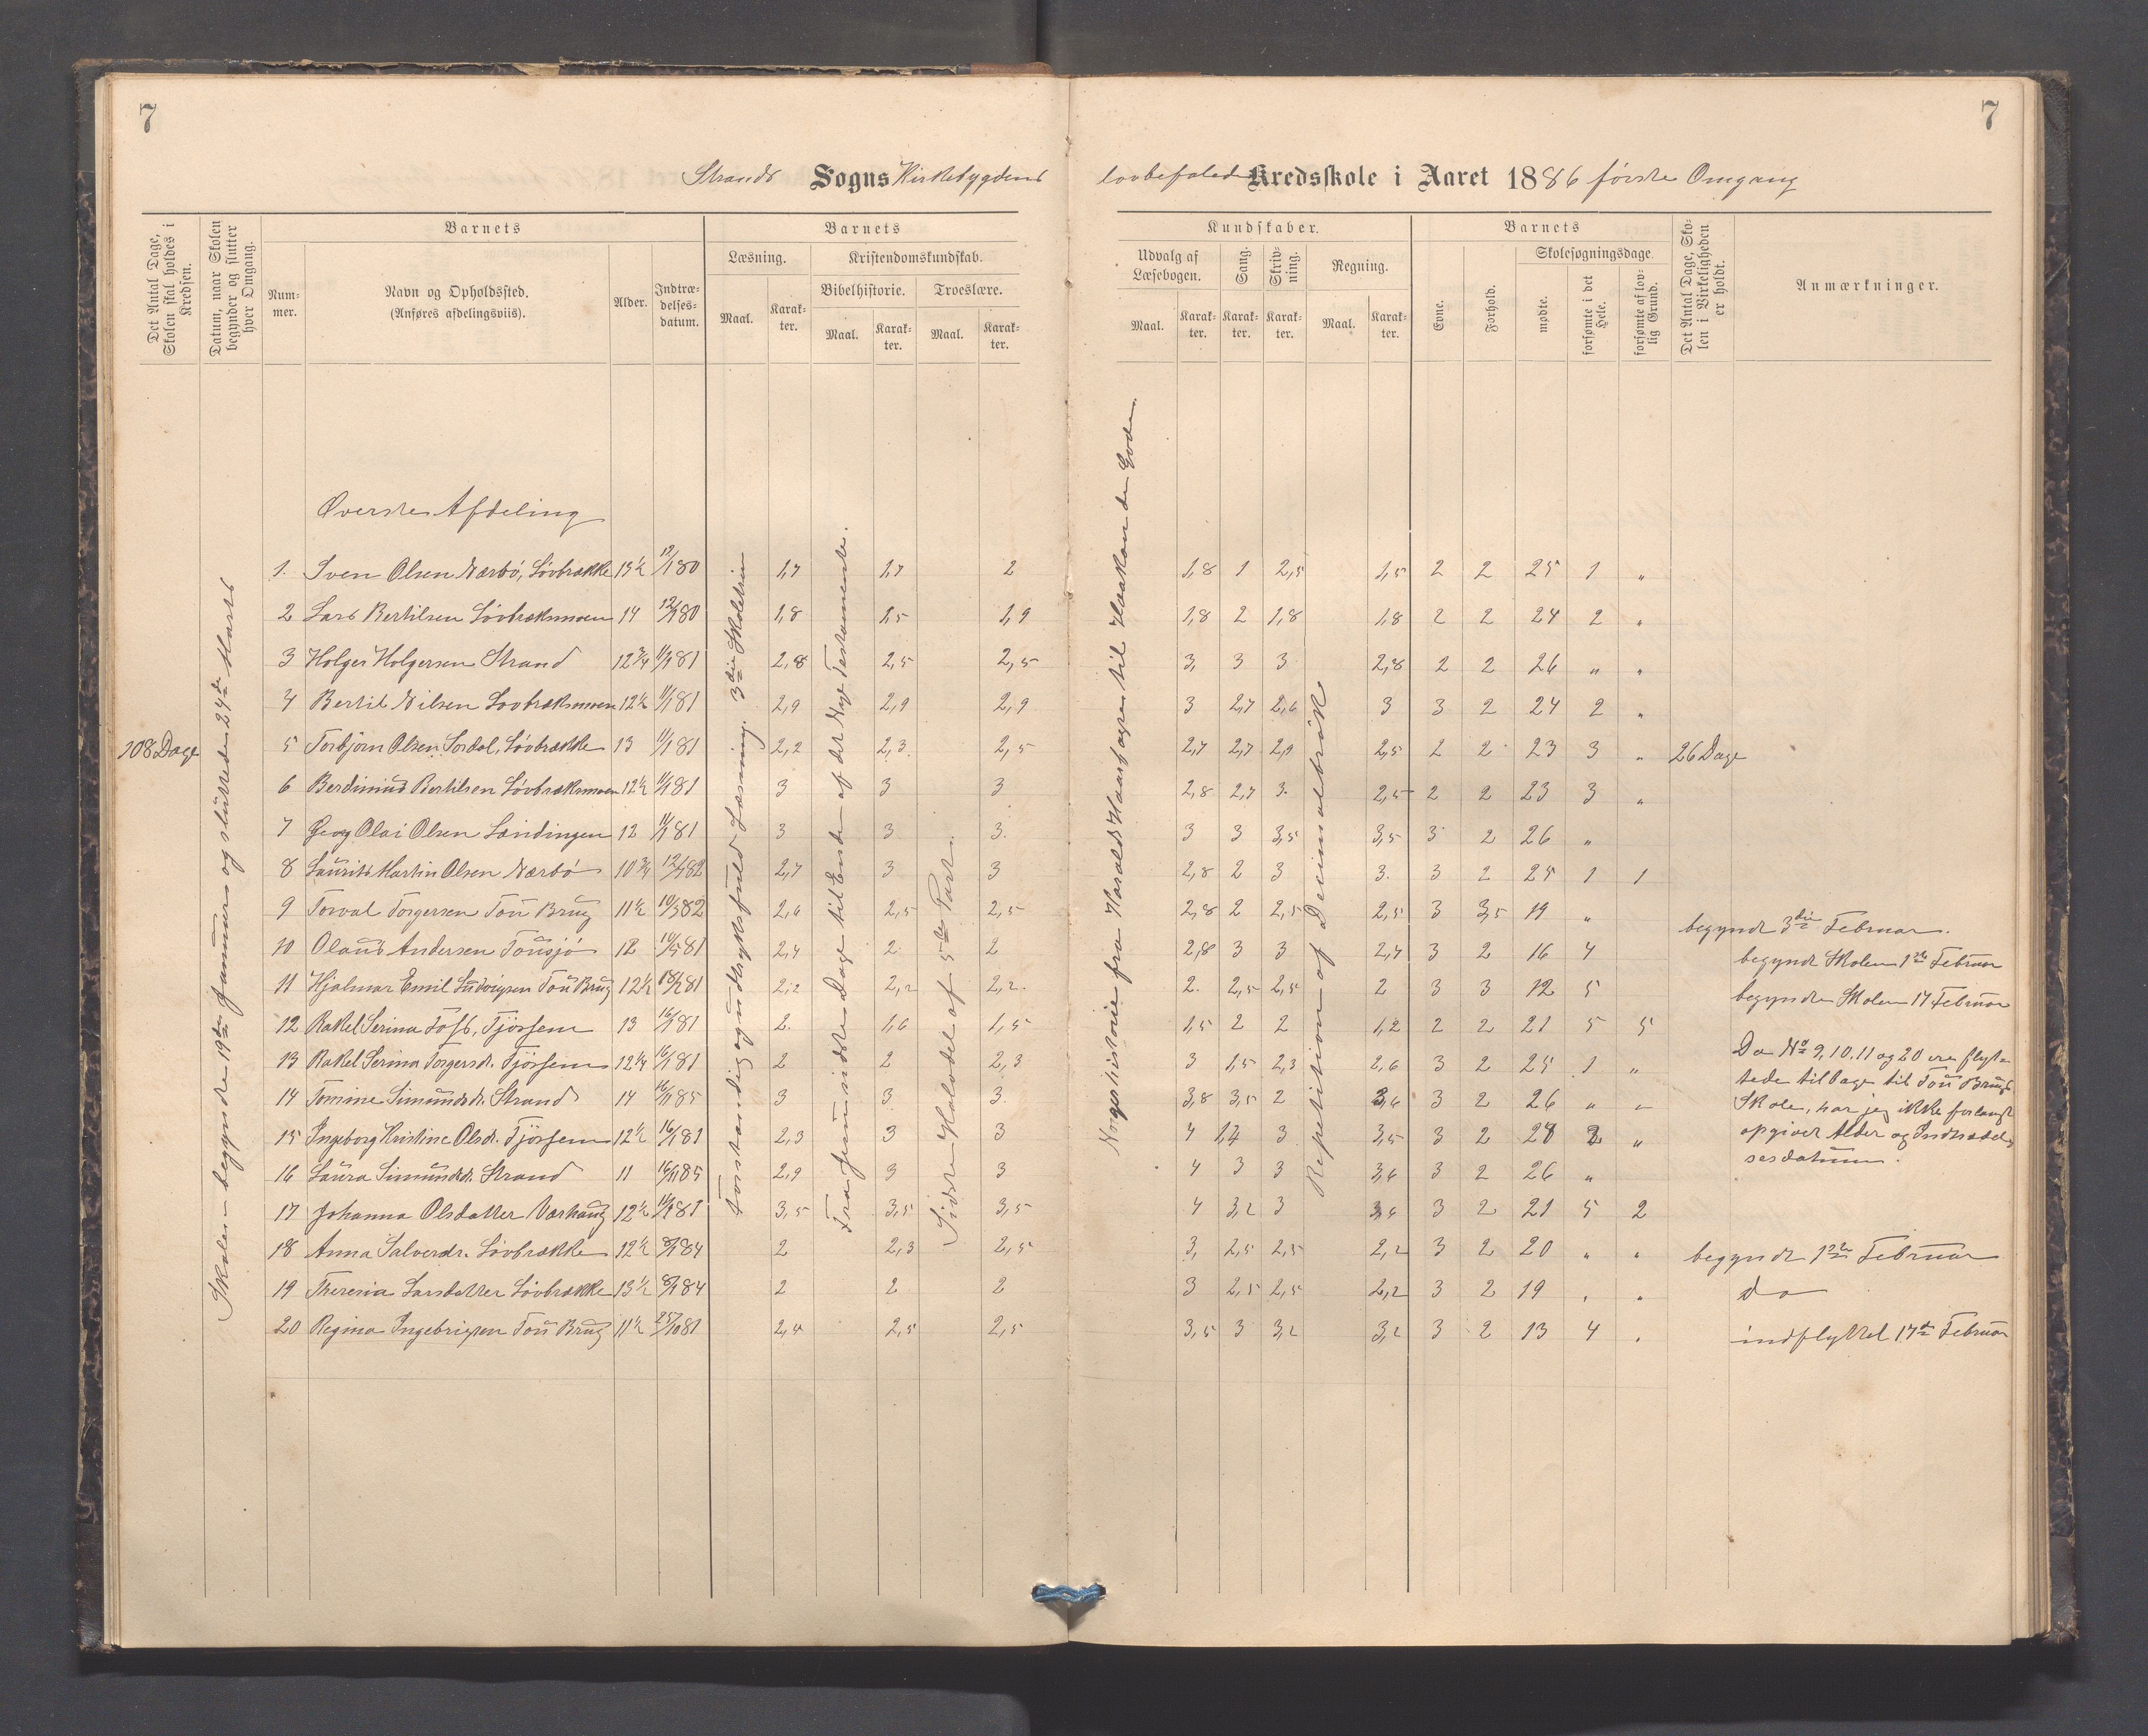 7
7
Strands Sogns Kirkebygdens lovbefalede Kredsskole i Aaret 1886 første Omgang
Det Antal Dage, Skolen skal holdes i Kredsen.
Datum, naar Skolen begynder og slutter hver Omgang.
Barnets
Num-
mer.
Navn og Opholdssted.
(Anføres afdelingsviis).
Alder.
Indtræ-
delses-
datum.
Barnets
Læsning.
Maal.
Karak-
ter.
Kristendomskundskab.
Bibelhistorie.
Maal.
Karak-
ter.
Troeslære.
Maal.
Karak-
ter.
Kundskaber.
Udvalg af
Læsebogen.
Maal.
Karak-
ter.
Sang.
Karak-
ter.
Skriv-
ning.
Karak-
ter.
Regning.
Maal.
Karak-
ter.
Barnets
Evne.
Forhold.
Skolesøgningsdage.
mødte.
forsømte i det Hele.
forsømte af lov-
lig Grund.
Det Antal Dage, Sko-
len i Virkeligheden
er holdt.
Anmærkninger.
108 Dage
Skolen begyndte 19de Januar og sluttede 24de Marts
Øverste Afdeling
Forstandig og udtryksfuld Læsning. 3die Skoletrin
Fra Jesu sidste Dage til Enden af det Nye Testamente.
Sidste Halvdel af 5te Part.
Norges historie fra Harald Haarfagre til Haakon den Gode.
Repetition af Decimalbrøk
26 Dage
1. Sven Olsen Nærbø, Løvbrække 13½ 12/1 80 1,7 1,7 2 1,8 1 2,5 1,5 2 2 25 1 "
2 Lars Bertilsen Løvbræksmoen 14 12/1 80 1,8 1,5 1,9 1,8 2 1,8 1,8 2 2 24 2 "
3 Holger Holgersen Strand 12¾ 11/1 81 2,8 2,5 2,5 3, 3 3 2,8 2 2 26 " "
4 Bertil Nilsen Løvbræksmoen 12½ 11/1 81 2,9 2,9 2,9 3 2,7 2,6 3 3 2 24 2 "
5 Torbjørn Olsen Sordal, Løvbrække 13 11/1 81 2,2 2,3 2,5 2,7 2,7 2,9 2,5 2 2 23 3 "
6 Berdinius Bertilsen Løvbræksmoen 12½ 11/1 81 3 3 3 2,8 2,7 3. 2,5 2 2 23 3 "
7 Georg Olai Olsen Landingen 12 11/1 81 3 3 3. 3 3 3,5 3,5 3 2 26 "
8 Laurits Martin Olsen Nærbø 10¾ 12/1 82 2,7 3 3 2,8 2 3 3. 3 2 25 1 1
9 Torval Torgersen Tou Brug 11½ 10/3 82 2,6 2,5 2,5 2,8 2 2,5 2,5 3 3,5 19 " begyndt 3die Februar.
10 Olaus Andersen Tousjø 12 10/5 81 2,4 2 2 2,8 3 3 2,7 3 2 16 4 begyndt Skolen 1ste Februar
11 Hjalmar Emil Ludvigsen Tou Brug 12½ 81 2,2 2,2 2,2. 2. 2,5 2,5 2 3 3 12 5 begyndte Skolen 17 Februar
12 Rakel Serina Tosb, Tjøssem 13 16/1 81 2. 1,6 1,5 1,5 2 2 1,2 2 2 21 5 5
13 Rakel Serina Torgersdr. Tjøssem 12¼ 16/1 81 2 2 2,3 3 1,5 2,3 2,6 3 2 25 1 "
14 Tomine Simundsdr. Strand 14 16/11 85 3 3 3. 3,8 3,5 2 3,6 3 2 26 " "
15 Ingeborg Kristine Olsdr. Tjøssem 12½ 16/1 81 2,3 3 3 4 1,7 3 3,5 3 2 24 2 "
16 Laura Simundsdr. Strand 11 16/11 85 2,9 3 3 4 3 3 3,6 3 2 26 "
17 Johanna Olsdatter Varhaug 12½ 81 3,5 3,5 3,5 4 3,2 3 3,6 3 2 21 5 2
18 Anna Salversdr. Løvbrække 12½ 8/1 84 2 2,3 2,5 3, 2,5 2,5 2,2 3 2 20 " " begyndt 1ste Februar
19 Theresia Larsdatter Løvbrække 13½ 8/1 84 2 2 2 3 2,5 2,5 2,2 3 2 19 " " do
20 Regina Ingebrigsen Tou Brug 11½ 25/10 81 2,4 2,5 2,5 3,5 3 3,2 3,2 3 2 13 4 " indflyttet 17de Februar
Da No 9, 10, 11 og 20 ere flyt-
tede tilbage til Tou Brugs
Skole, har jeg ikke forlangt
opgivet Alder og Indtrædel-
sesdatum.